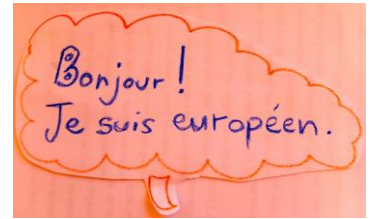 Bonjour!
Je suis européen.